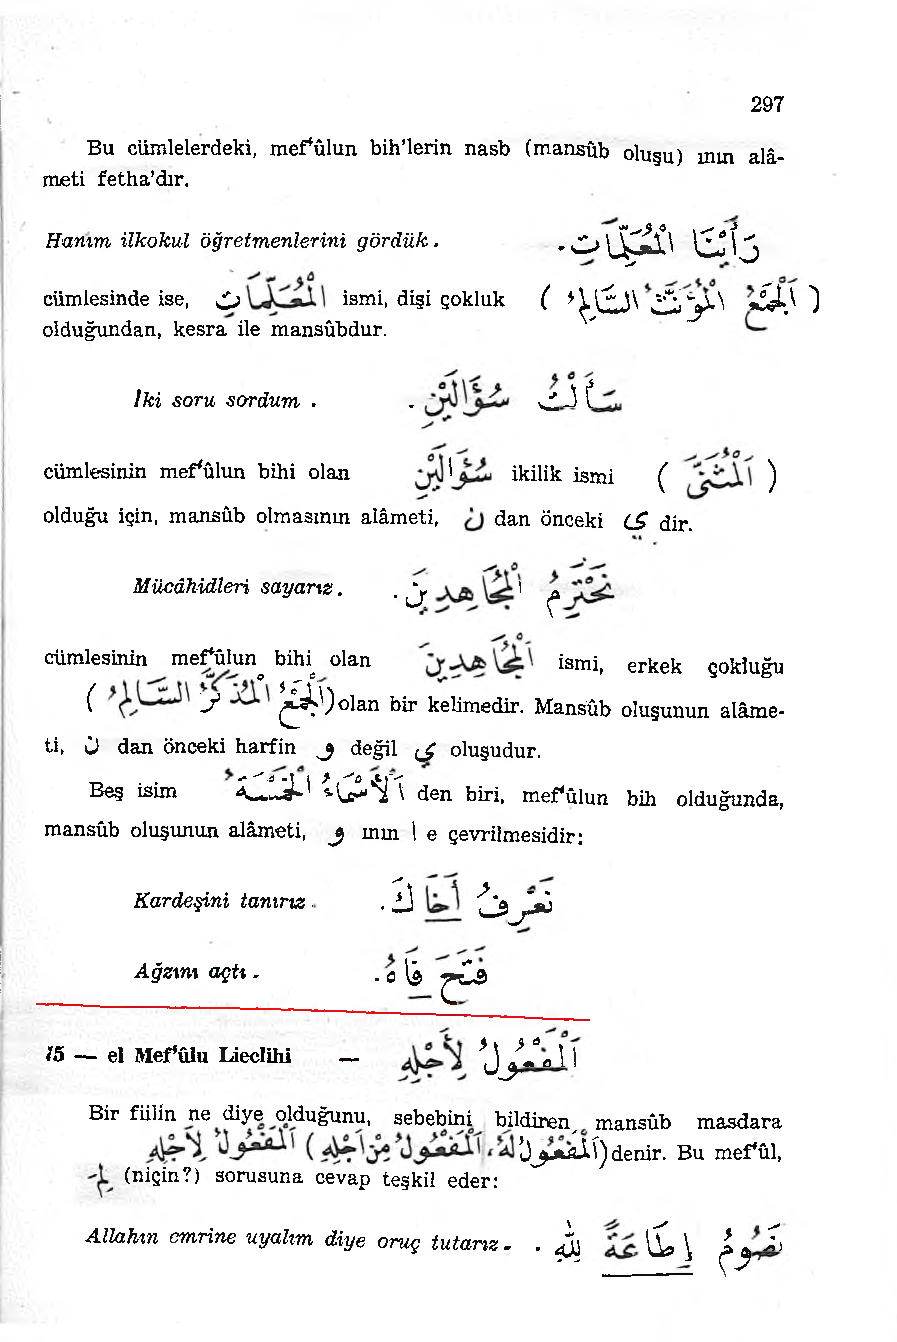 297
Bu cümlelerdeki, mef'ûlun bih'lerin nasb (mansûb oluşu) ının alâ-
meti fetha'dır.
Hanım ilkokul öğretmenlerini gördük. رَأَيْنَا الْمُعَلِّمَاتِ.
cümlesinde ise, الْمُعَلِّمَاتِ ismi, dişi çokluk ( اَلْجَمْعُ الْمُؤَنَّثُ السَّالِمُ )
olduğundan, kesra ile mansûbdur.
İki soru sordum . سَأَلْتُ سُؤَالَيْنِ.
cümlesinin mef'ûlun bihi olan سُؤَالَيْنِ ikilik ismi ( اَلْمُثَنَّى )
olduğu için, mansûb olmasının alâmeti, ن dan önceki ي dir.
Mücâhidleri sayarız. نَحْتَرِمُ الْمُجَاهِدِينَ.
cümlesinin mef'ûlun bihi olan اَلْمُجَاهِدِينَ ismi, erkek çokluğu
( اَلْجَمْعُ الْمُذَكَّرُ السَّالِمُ ) olan bir kelimedir. Mansûb oluşunun alâme-
ti, ن dan önceki harfin و değil ي oluşudur.
Beş isim اَلْأَسْمَاءُ الْخَمْسَةُ den biri, mef'ûlun bih olduğunda,
mansûb oluşunun alâmeti, و ının ا e çevrilmesidir:
Kardeşini tanırız. نَعْرِفُ أَخَاكَ.
Ağzını açtı. فَتَحَ فَاهُ.
15 — el Mef'ûlu Lieclihi — اَلْمَفْعُولُ لِأَجْلِهِ
Bir fiilin ne diye olduğunu, sebebini bildiren, mansûb masdara
اَلْمَفْعُولُ لِأَجْلِهِ ( اَلْمَفْعُولُ لَهُ، اَلْمَفْعُولُ مِنْ أَجْلِهِ ) denir. Bu mef'ûl,
لِمَ (niçin?) sorusuna cevap teşkil eder:
Allahın emrine uyalım diye oruç tutarız. نَصُومُ إِطَاعَةً لِلّٰهِ .